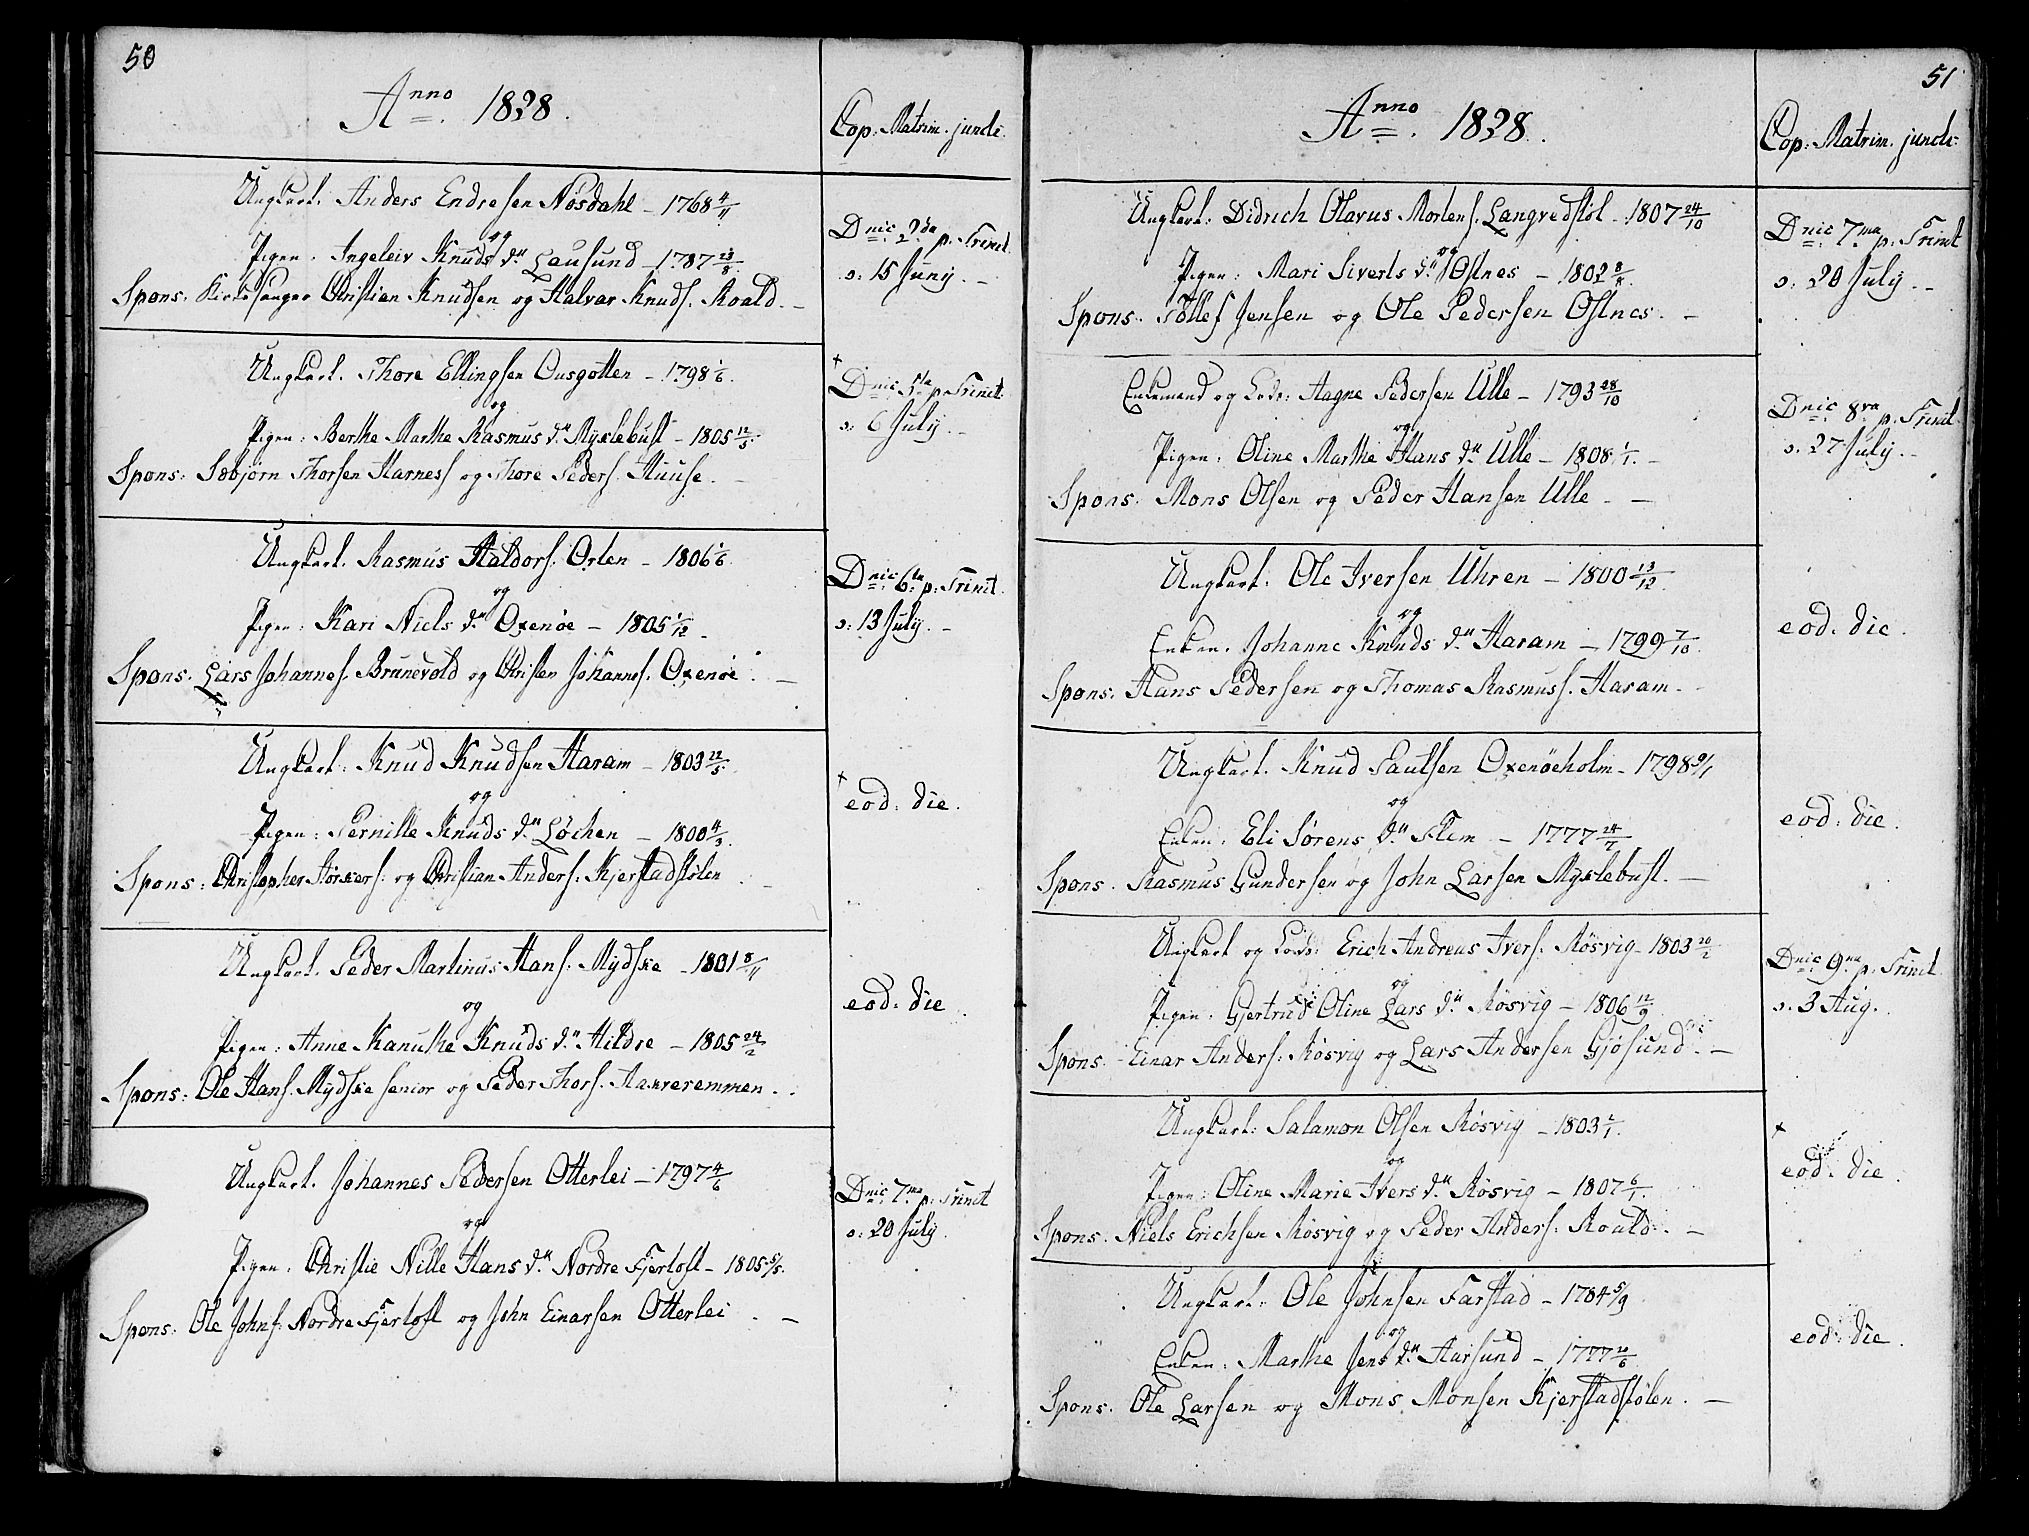 50
Anno 1828.
Cop: Matrim. juncti:
Ungkarl. Anders Endresen Nøsdahl - 1768 4/11
og
Pigen. Ingeleiv Knuds dr. Lausund - 1787 23/8.
Spons. Kirkesanger Christian Knudsen og Halvar Knuds. Roald. -
Dnic. 2da p. Trinit.
o: 15 Juny. -
Ungkarl. Thore Ellingsen Ousgotten - 1798 1/6.
og
Pigen: Berthe Marthe Rasmus dr. Myxlebust - 1805 12/5.
Spons: Sæbjørn Thorsen Harness og Thore Peders. Huuse. -
+
Dnic. 5ta p. Trinit.
o: 6 July. -
Ungkarl. Rasmus Haldors. Orten - 1806 1/6.
og
Pigen: Kari Niels dr. Oxenøe - 1805 1/12.
Spons. Lars Johannes. Brunevold og Christen Johannes. Oxenøe. -
Dnic. 6ta p: Trinit.
o: 13 July. -
Ungkarl. Knud Knudsen Haram - 1803 22/5.
og
Pigen: Pernille Knuds dr. Løchen - 1800 4/3.
Spons: Christopher og Christian Anders: Kjerstadstølen. -
+
eod: die.
Ungkarl. Peder Martinus Hans: Mydske - 1801 8/11
og
Pigen: Anne Kanutke Knuds dr. Hildre - 1805 24/2
Spons: Ole Hans. Mydske senior og Peder Thors. Aakreremmen. -
eod: die.
Ungkarl. Johannes Pedersen Otterlei - 1797 4/6
og
Pigen. Christie Nille Hans dr. Nordre Fjertoft - 1805 5/5.
Spons. Ole Johns: Nordre Fjertoft og John Einarsen Otterlei. -
Dnic. 7ma p. Trinit
o: 20 July.
51
Anno 1828.
Cop: Matrim. juncti:
Ungkarl: Didrich Olavus Mortens. Langvedstøl - 1807 24/10
og
Pigen: Mari Siverts dr. Ostnes - 1802 8/8.
Spons. Tollef Jensen og Ole Pedersen Ostnes. -
Dnic. 7ma p: Trinit
o: 20 July. -
Enkemand og Aagne Pedersen Ulle - 1793 28/10
og
Pigen: Oline Marthe Hans dr. Ulle - 1808 1/1. -
Spons: Mons Olsen og Peder Hansen Ulle. -
Dnic. 8va p. Trinit
o: 27 July. -
Ungkarl. Ole Iversen Uhren - 1800 13/12.
og
Enken. Johanne Knuds dr. Haram - 1799 7/10.
Spons: Hans Pedersen og Thomas Rasmuss. Haram. -
eod: die.
Ungkarl. Knud Paulsen Oxenøeholm - 1798 9/1
og
Enken: Eli Sørens dr. Flem - 1777 24/7
Spons. Rasmus Gundersen og John Larsen Myxlebust. -
eod: die.
Ungkarl og Erich Andreas Ivers: Røsvig - 1803 20/2
og
Pigen: Gjertrude Oline Lars dr. Røsvig - 1806 12/9.
Spons: Einar Anders: Røsvig og Lars Andersen Gjøsund. -
Dnic. 9na p. Trinit
o. 3 Aug.
Ungkarl: Salamon Olsen Røsvig - 1803 2/1.
og
Pigen: Oline Marie Ivers dr. Røsvig - 1807 6/1.
Spons. Niels Erichsen Røsvig og Peder Anders: Roald. -
+
eod: die.
Ungkarl: Ole Johnsen Farstad - 1784 5/9.
og
Enken: Marthe Jens dr. Aarsund - 1777 /6
Spons. Ole Larsen og Mons Monsen Kjerstadstølen. -
eod: die.